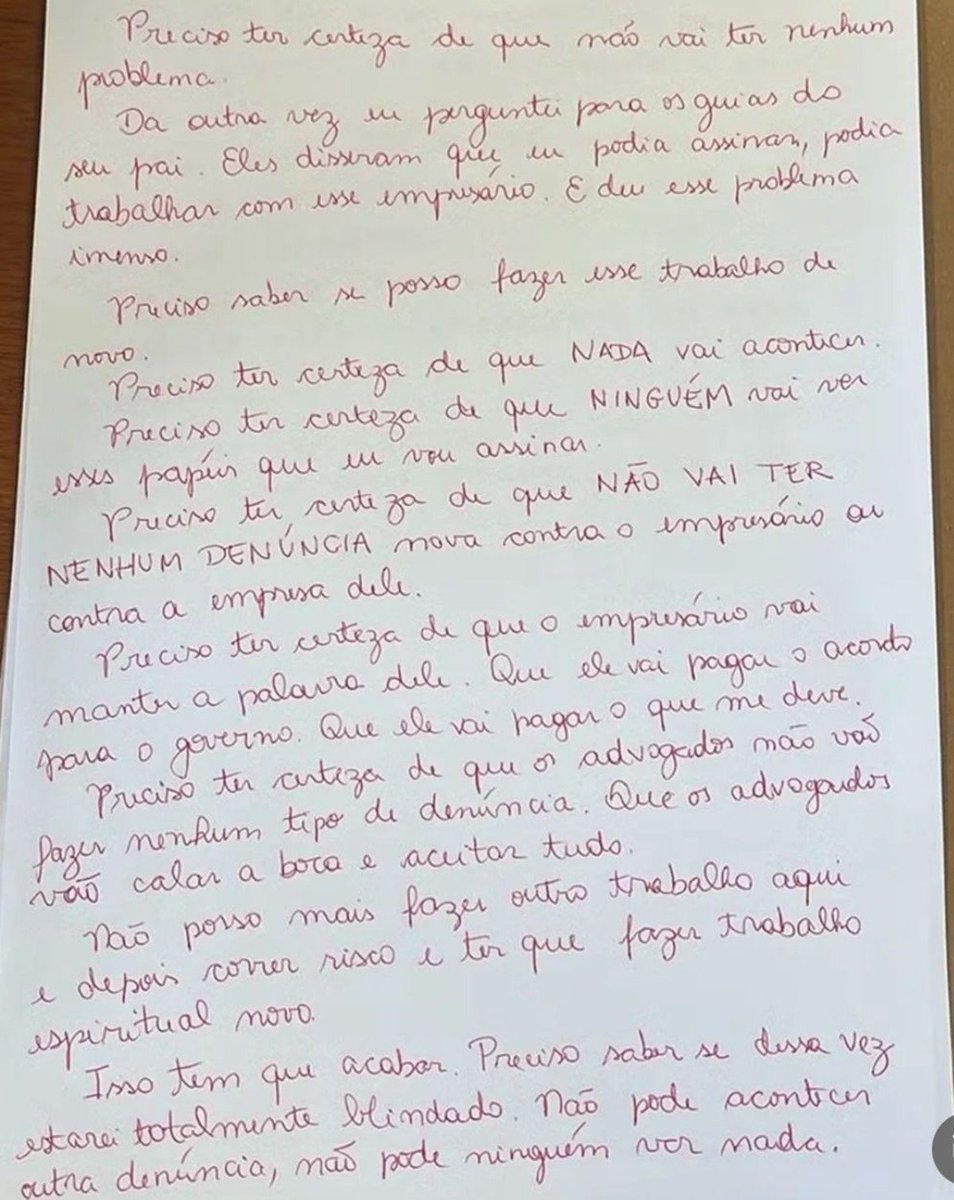 Preciso ter certeza de que não vai ter nenhum
problema.
Da outra vez eu perguntei para os guias do
seu pai. Eles disseram que eu podia assinar, podia
trabalhar com esse empresário. E deu esse problema
imenso.
Preciso saber se posso fazer esse trabalho de
novo.
Preciso ter certeza de que NADA vai acontecer.
Preciso ter certeza de que NINGUÉM vai ver
esses papéis que eu vou assinar.
Preciso ter certeza de que NÃO VAI TER
NENHUM DENÚNCIA nova contra o empresário ou
contra a empresa dele.
Preciso ter certeza de que o empresário vai
manter a palavra dele. Que ele vai pagar o acordo
para o governo. Que ele vai pagar o que me deve.
Preciso ter certeza de que os advogados não vão
fazer nenhum tipo de denúncia. Que os advogados
vão calar a boca e aceitar tudo.
Não posso mais fazer outro trabalho aqui
e depois correr risco e ter que fazer trabalho
espiritual novo.
Isso tem que acabar. Preciso saber se dessa vez
estarei totalmente blindado. Não pode acontecer
outra denúncia, não pode ninguém ver nada.